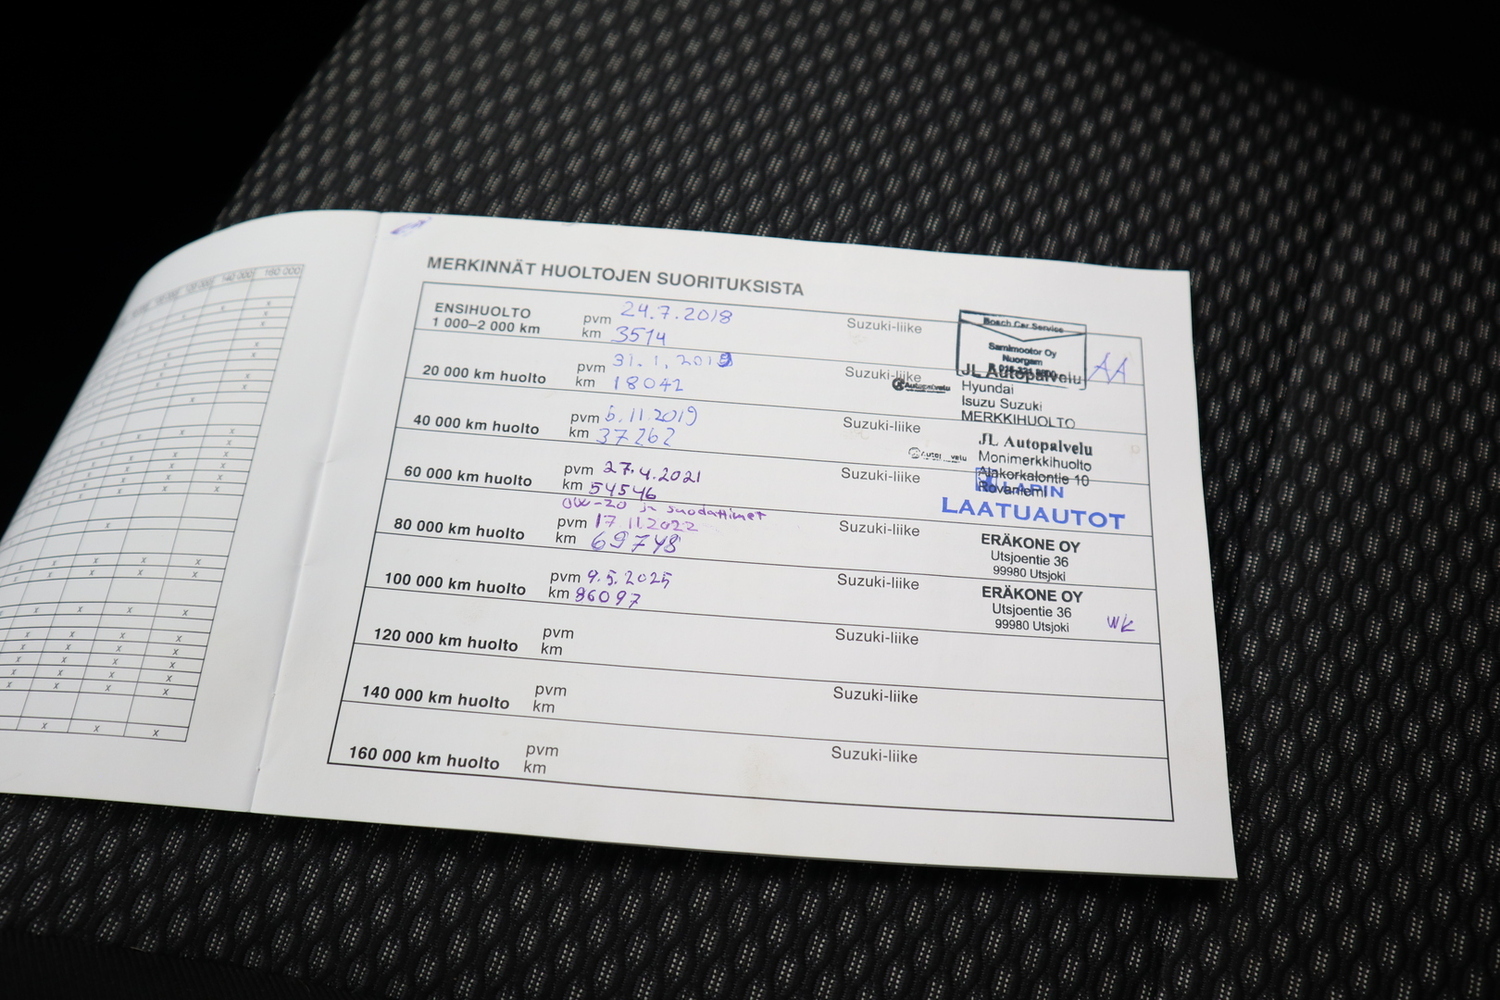 120 000 140 000 160 000
MERKINNÄT HUOLTOJEN SUORITUKSISTA
ENSIHUOLTO
1 000–2 000 km
pvm 24.7.2018
km 3514
Suzuki-liike
Bosch Car Service
Samimootor Oy
Nuorgam
AA
20 000 km huolto
pvm 31.1.2019
km 18042
Suzuki-liike
Autopalvelu
JL Autopalvelu
Hyundai
Isuzu Suzuki
MERKKIHUOLTO
40 000 km huolto
pvm 6.11.2019
km 37262
Suzuki-liike
JL Autopalvelu
Monimerkkihuolto
Alakorkalontie 10
Rovaniemi
60 000 km huolto
pvm 27.4.2021
km 54546
0W-20 ja suodattimet
Suzuki-liike
LAPIN
LAATUAUTOT
80 000 km huolto
pvm 17.11.2022
km 69748
Suzuki-liike
ERÄKONE OY
Utsjoentie 36
99980 Utsjoki
100 000 km huolto
pvm 9.5.2025
km 86097
Suzuki-liike
ERÄKONE OY
Utsjoentie 36
99980 Utsjoki
WK
120 000 km huolto
pvm
km
Suzuki-liike
140 000 km huolto
pvm
km
Suzuki-liike
160 000 km huolto
pvm
km
Suzuki-liike